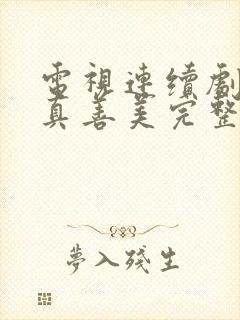 電視連續劇
真善美完整
夢入殘生